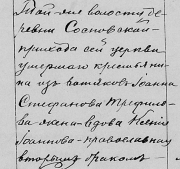 Той-же волости де-
ревни Сосновской
прихода сей церкви
умершаго крестьяни-
на изъ вотяковъ Іоанна
Стефанова
ва жена-вдова Ксенія
Іоаннова-православная
вторымъ бракомъ